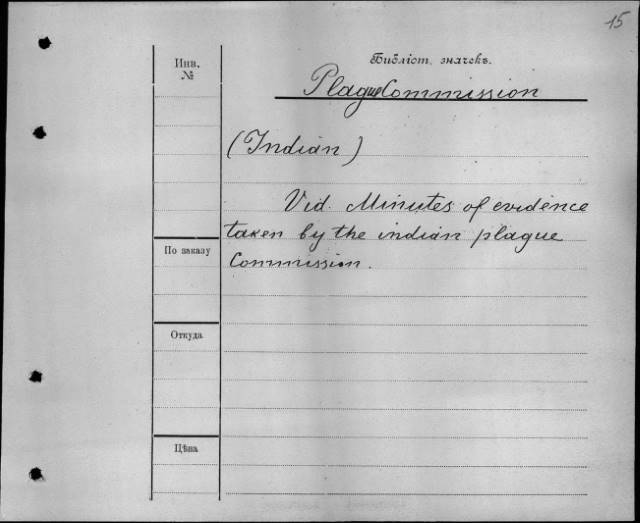 15
Инв.
№
Библіот. значекъ.
Plague Commission
(Indian)
Vid. Minutes of evidence
taken by the indian plague
Commission.
По заказу
Откуда
Цѣна